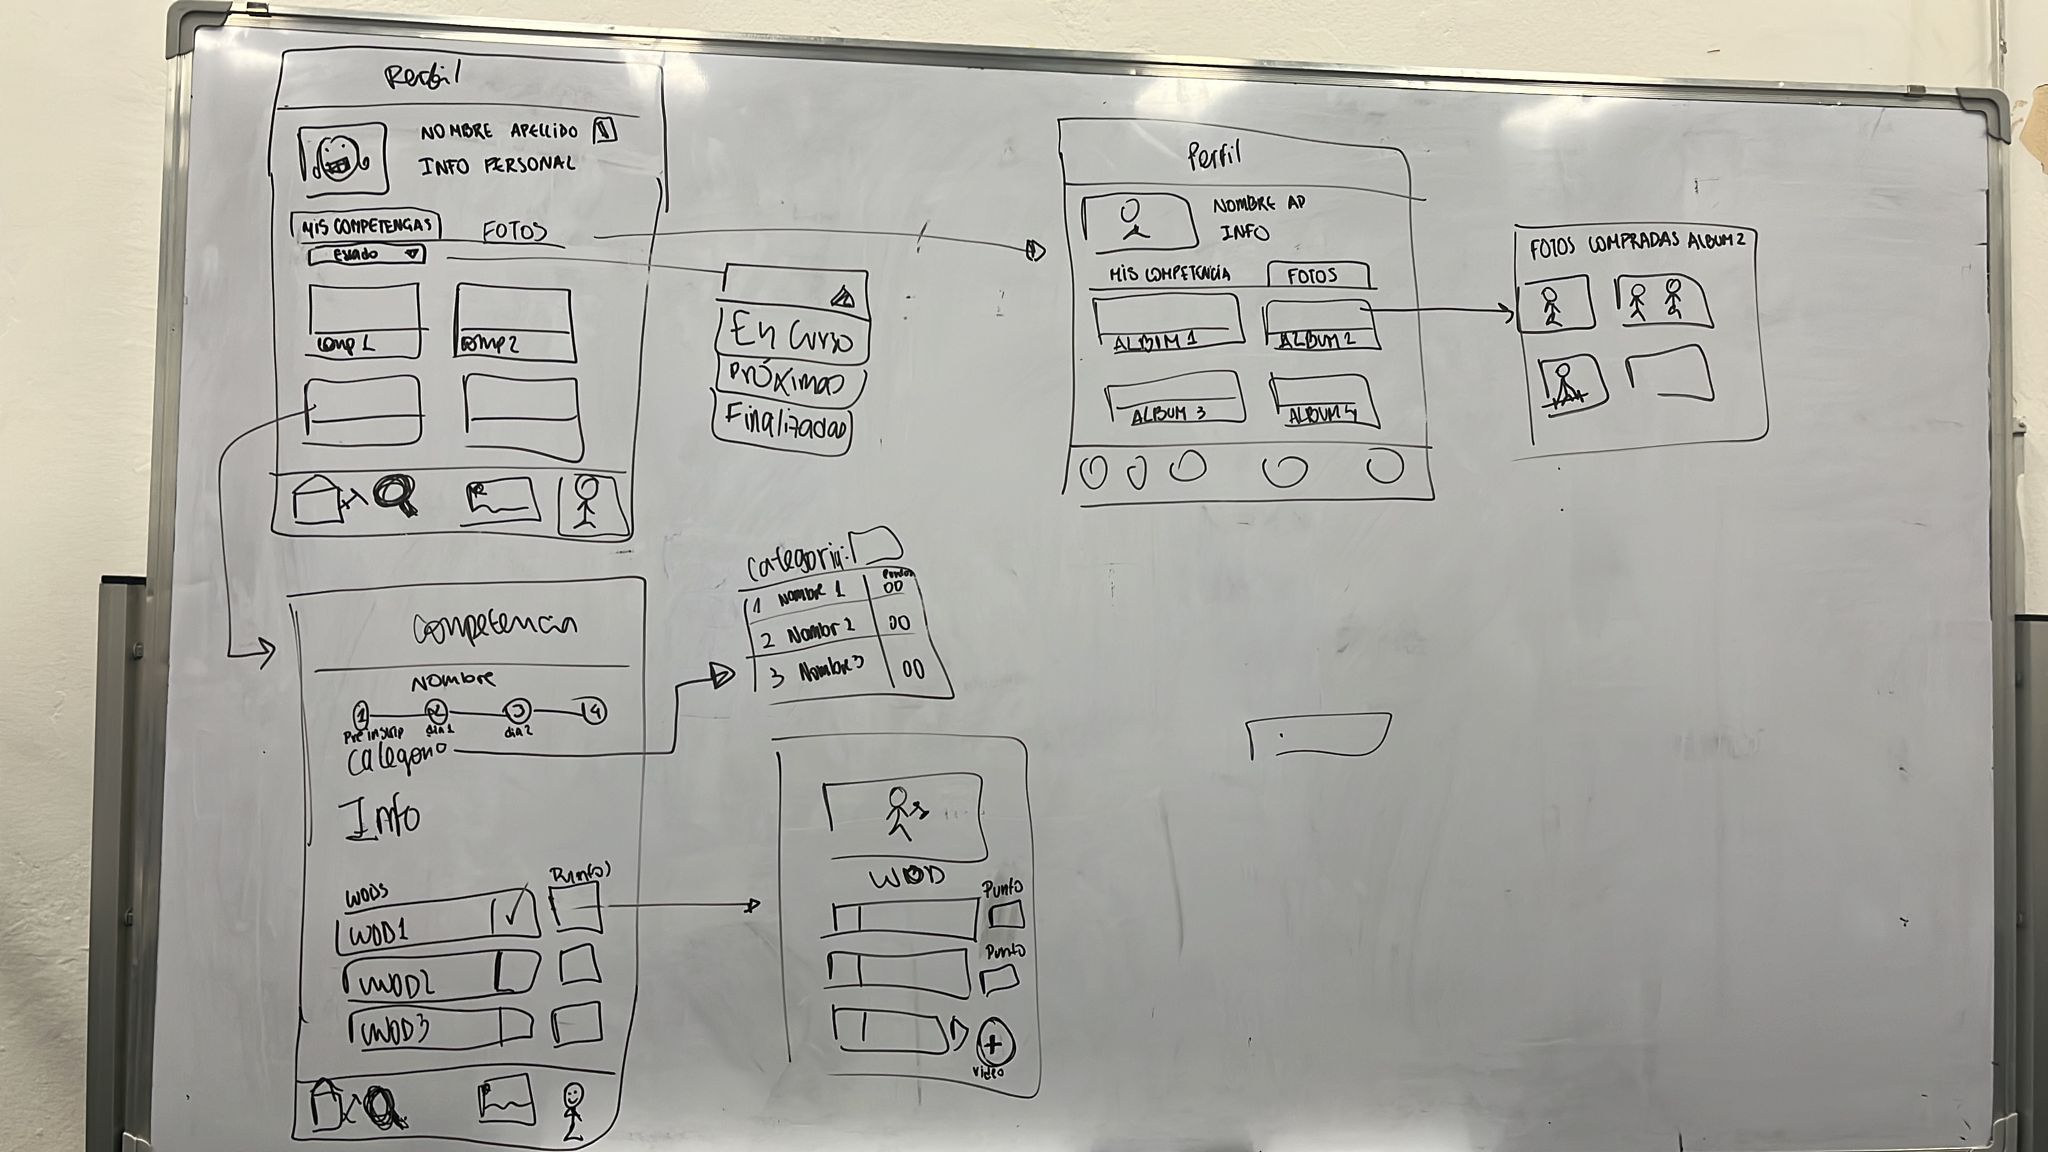 Perfil
NOMBRE APELLIDO
INFO PERSONAL
MIS COMPETENCIAS
FOTOS
Estado
comp 1
comp 2
En Curso
Próximas
Finalizadas
Perfil
NOMBRE AP
INFO
MIS COMPETENCIA
FOTOS
ALBUM 1
ALBUM 2
ALBUM 3
ALBUM 4
FOTOS COMPRADAS ALBUM 2
Competencia
Nombre
1 2 3 4
Pre inscrip dia 1 dia 2
Categoria
Info
WODS
Punto)
WOD1
WOD2
WOD3
Categoria:
Puntos
1 Nombre 1 00
2 Nombr 2 00
3 Nombre 3 00
WOD
Punto
Punto
+
video